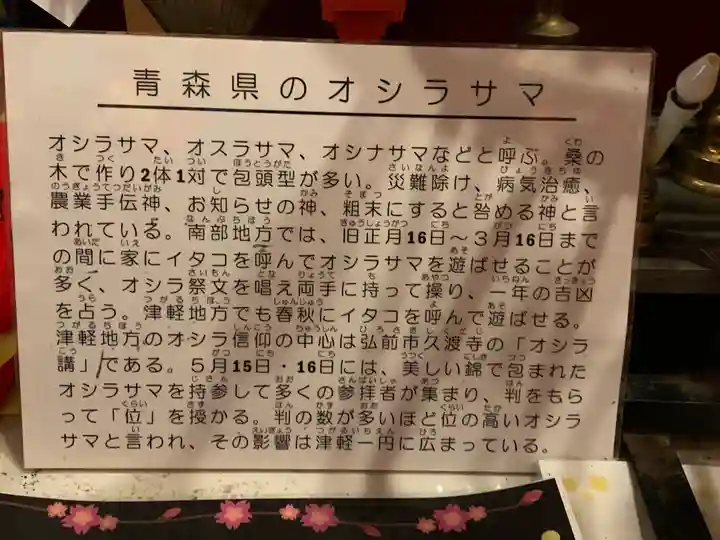 青森県のオシラサマ
オシラサマ、オスラサマ、オシナサマなどと呼ぶ。桑の
木で作り2体1対で包頭型が多い。災難除け、病気治癒、
農業手伝神、お知らせの神、粗末にすると咎める神と言
われている。南部地方では、旧正月16日～3月16日まで
の間に家にイタコを呼んでオシラサマを遊ばせることが
多く、オシラ祭文を唱え両手に持って操り、一年の吉凶
を占う。津軽地方でも春秋にイタコを呼んで遊ばせる。
津軽地方のオシラ信仰の中心は弘前市久渡寺の「オシラ
講」である。5月15日・16日には、美しい錦で包まれた
オシラサマを持参して多くの参拝者が集まり、判をもら
って「位」を授かる。判の数が多いほど位の高いオシラ
サマと言われ、その影響は津軽一円に広まっている。